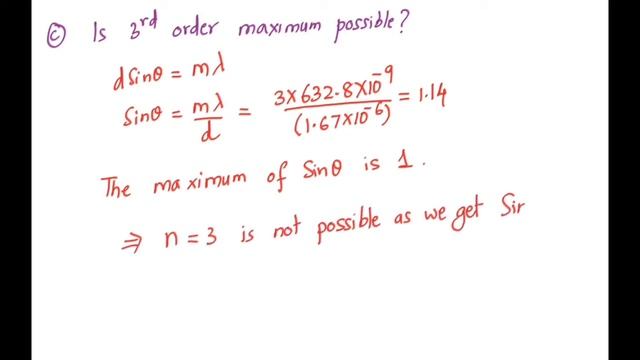 ⓒ Is 3rd order maximum possible?
dSinθ = mλ
Sinθ = mλ/d = 3×632.8×10⁻⁹/(1.67×10⁻⁶) = 1.14
The maximum of Sinθ is 1.
⇒ n = 3 is not possible as we get Sir